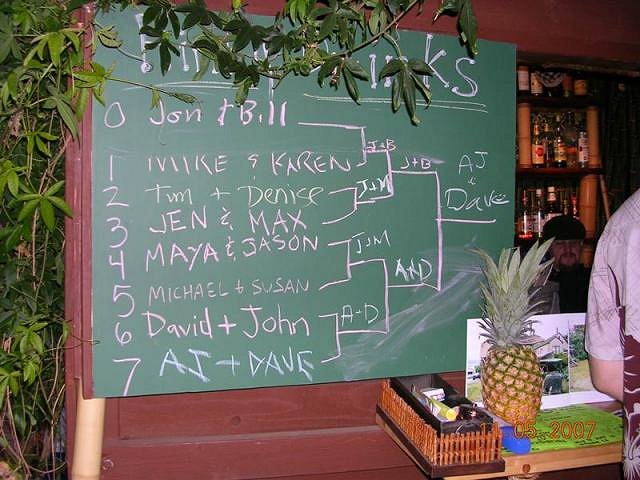 0 Jon + Bill
1 MIKE & KAREN
2 Tim + Denise
3 JEN & MAX
4 MAYA & JASON
5 MICHAEL + SUSAN
6 David + John
7 AJ + DAVE
J+B
J+M
J+M
A+D
J+B
A+D
AJ
&
Dave
11 05 2007